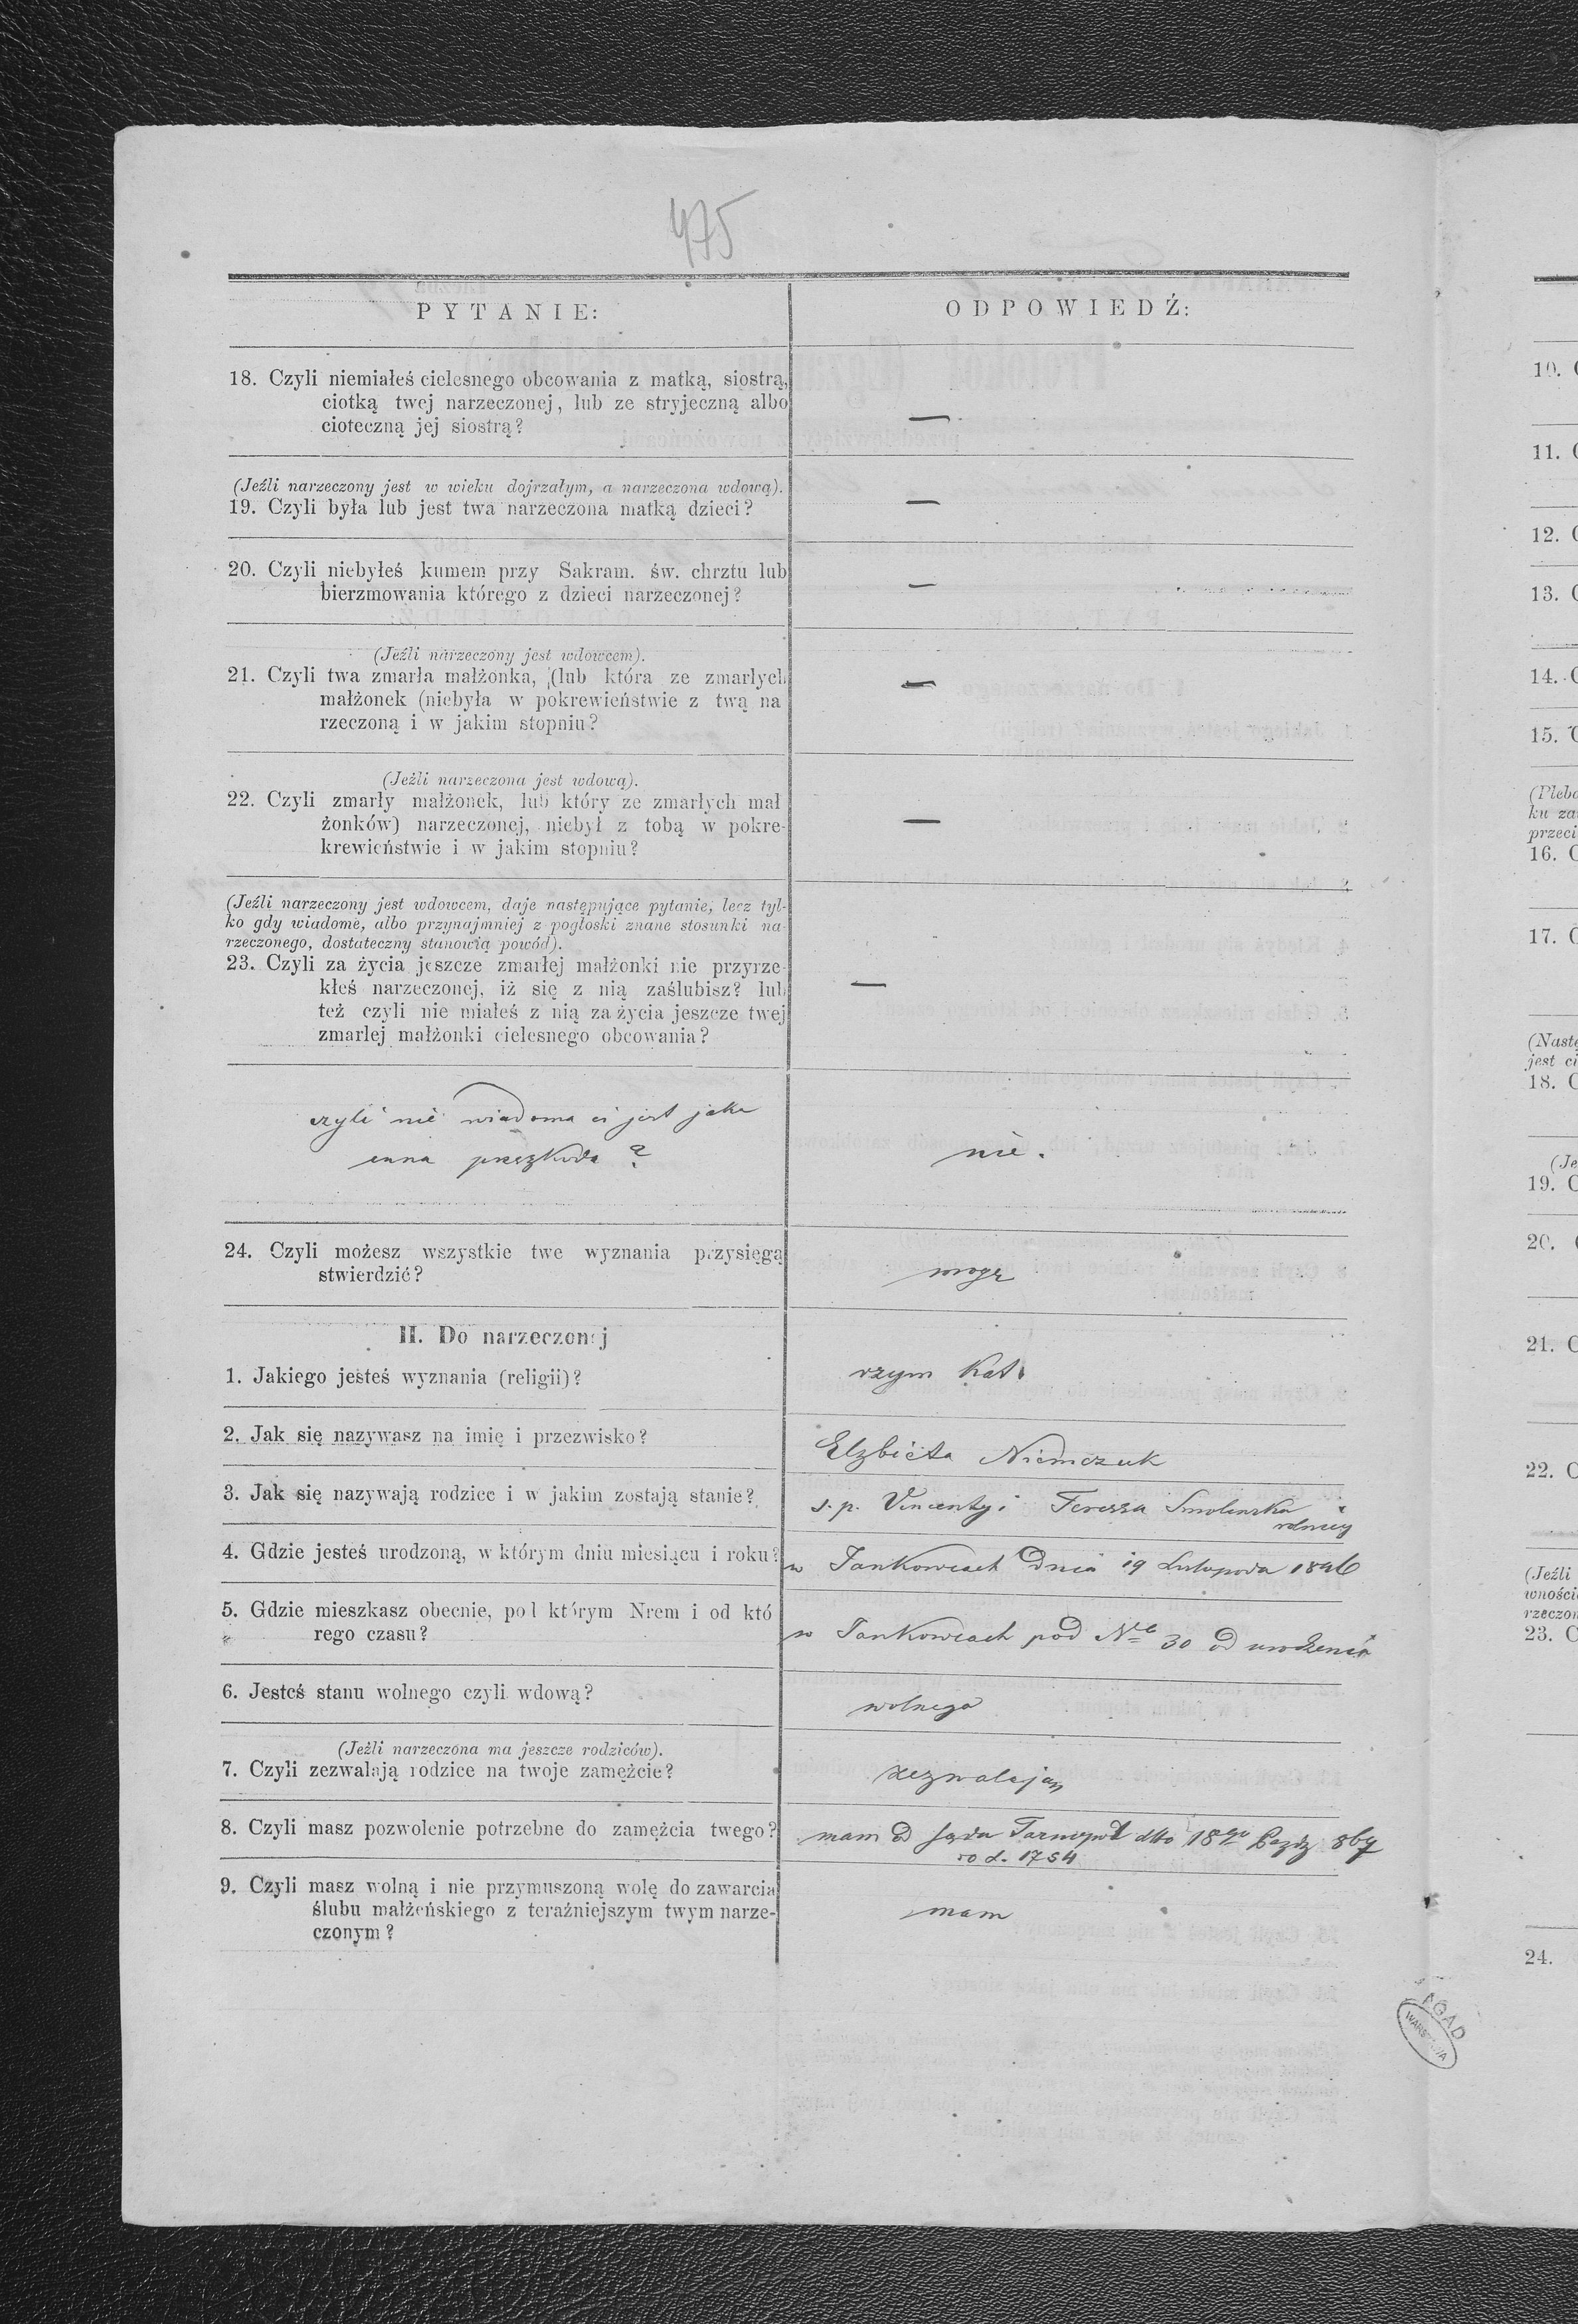 475
PYTANIE:
ODPOWIEDŹ:
18. Czyli niemiałeś cielesnego obcowania z matką, siostrą,
ciotką twej narzeczonej, lub ze stryjeczną albo
cioteczną jej siostrą?
—
(Jeźli narzeczony jest w wieku dojrzałym, a narzeczona wdową).
19. Czyli była lub jest twa narzeczona matką dzieci?
—
20. Czyli niebyłeś kumem przy Sakram. św. chrztu lub
bierzmowania którego z dzieci narzeczonej?
—
(Jeźli narzeczony jest wdowcem).
21. Czyli twa zmarła małżonka, (lub która ze zmarłych
małżonek (niebyła w pokrewieństwie z twą na
rzeczoną i w jakim stopniu?
—
(Jeżli narzeczona jest wdową).
22. Czyli zmarły małżonek, lub który ze zmarłych mał
żonków) narzeczonej, niebył z tobą w pokre-
krewieństwie i w jakim stopniu?
—
(Jeźli narzeczony jest wdowcem, daje następujące pytanie, lecz tyl-
ko gdy wiadome, albo przynajmniej z pogłoski znane stosunki na
rzeczonego, dostateczny stanowią powód).
23. Czyli za życia jeszcze zmarłej małżonki nie przyrze
kłeś narzeczonej, iż się z nią zaślubisz? lub
też czyli nie miałeś z nią za życia jeszcze twej
zmarlej małżonki cielesnego obcowania?
—
czyli nie wiadoma ci jest jaka
inna przezkoda?
nie.
24. Czyli możesz wszystkie twe wyznania przysięgą
stwierdzić?
mogę
II. Do narzeczonej
1. Jakiego jesteś wyznania (religii)?
rzym Kat.
2. Jak się nazywasz na imię i przezwisko?
Elzbieta Niemczuk
3. Jak się nazywają rodzice i w jakim zostają stanie?
s. p. Vincenty i Teressa Smolinska
rolnicy
4. Gdzie jesteś urodzoną, w którym dniu miesiącu i roku?
w Jankowcach dnia 19 Listopada 1846
5. Gdzie mieszkasz obecnie, pod którym Nrem i od któ
rego czasu?
w Jankowcach pod Nr 30 od urodzenia
6. Jesteś stanu wolnego czyli wdową?
wolnego
(Jeżli narzeczona ma jeszcze rodziców).
7. Czyli zezwalają rodzice na twoje zamężcie?
zezwalają
8. Czyli masz pozwolenie potrzebne do zamężcia twego?
mam od Sądu Tarnopol dto 18go Pazdz 867
do L. 1754
9. Czyli masz wolną i nie przymuszoną wolę do zawarcia
ślubu małżeńskiego z teraźniejszym twym narze-
czonym?
mam
AGAD
WARSZAWA
10. C
11. C
12. C
13. C
14. C
15. C
(Pleba
ku za
przeci
16. C
17. C
(Nastę
jest ci
18. C
(Je
19. C
20.
21. C
22. C
(Jeźli
wności
rzeczon
23. C
24.